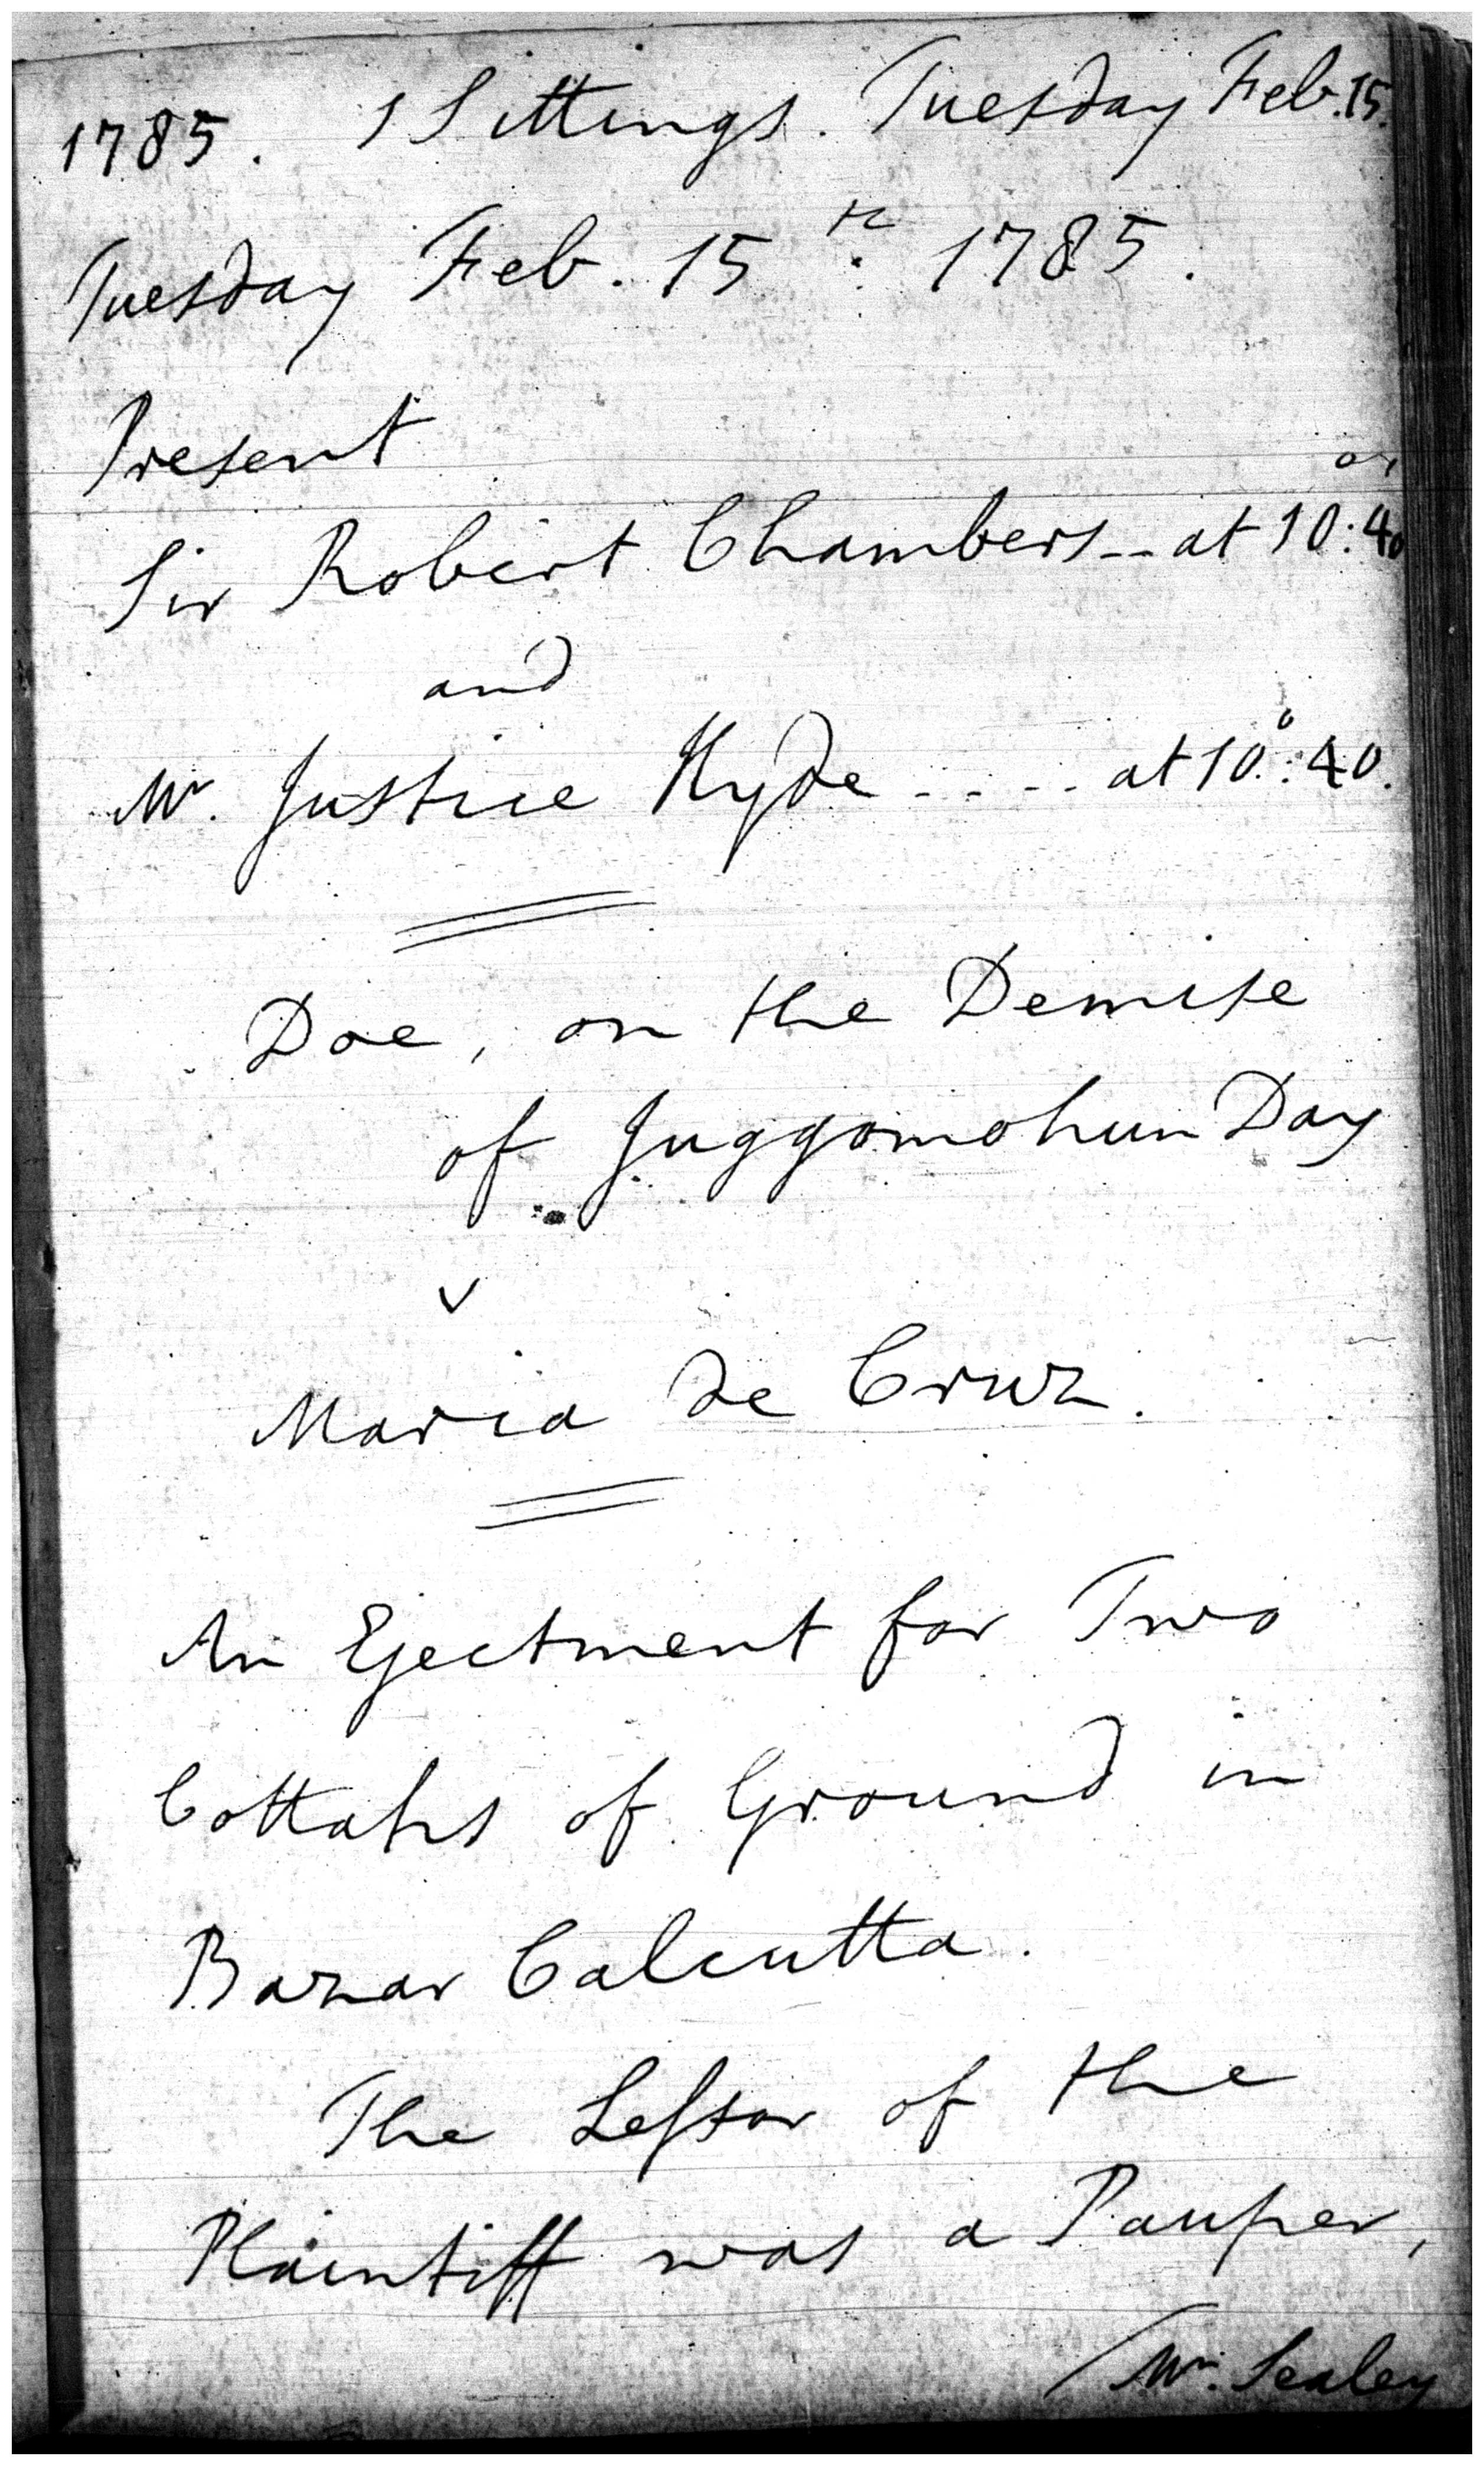 1785. 1 Sittings. Tuesday Feb. 15.
Tuesday Feb. 15th. 1785.
Present
Sir Robert Chambers -- at 10:40
and
Mr. Justice Hyde ..... at 10:40.
Doe, on the Demise
of Juggomohun Day
v
Maria de Cruz.
An Ejectment for Two
Cottahs of Ground in
Bazar Calcutta.
The Lessor of the
Plaintiff was a Pauper,
Mr. Sealey